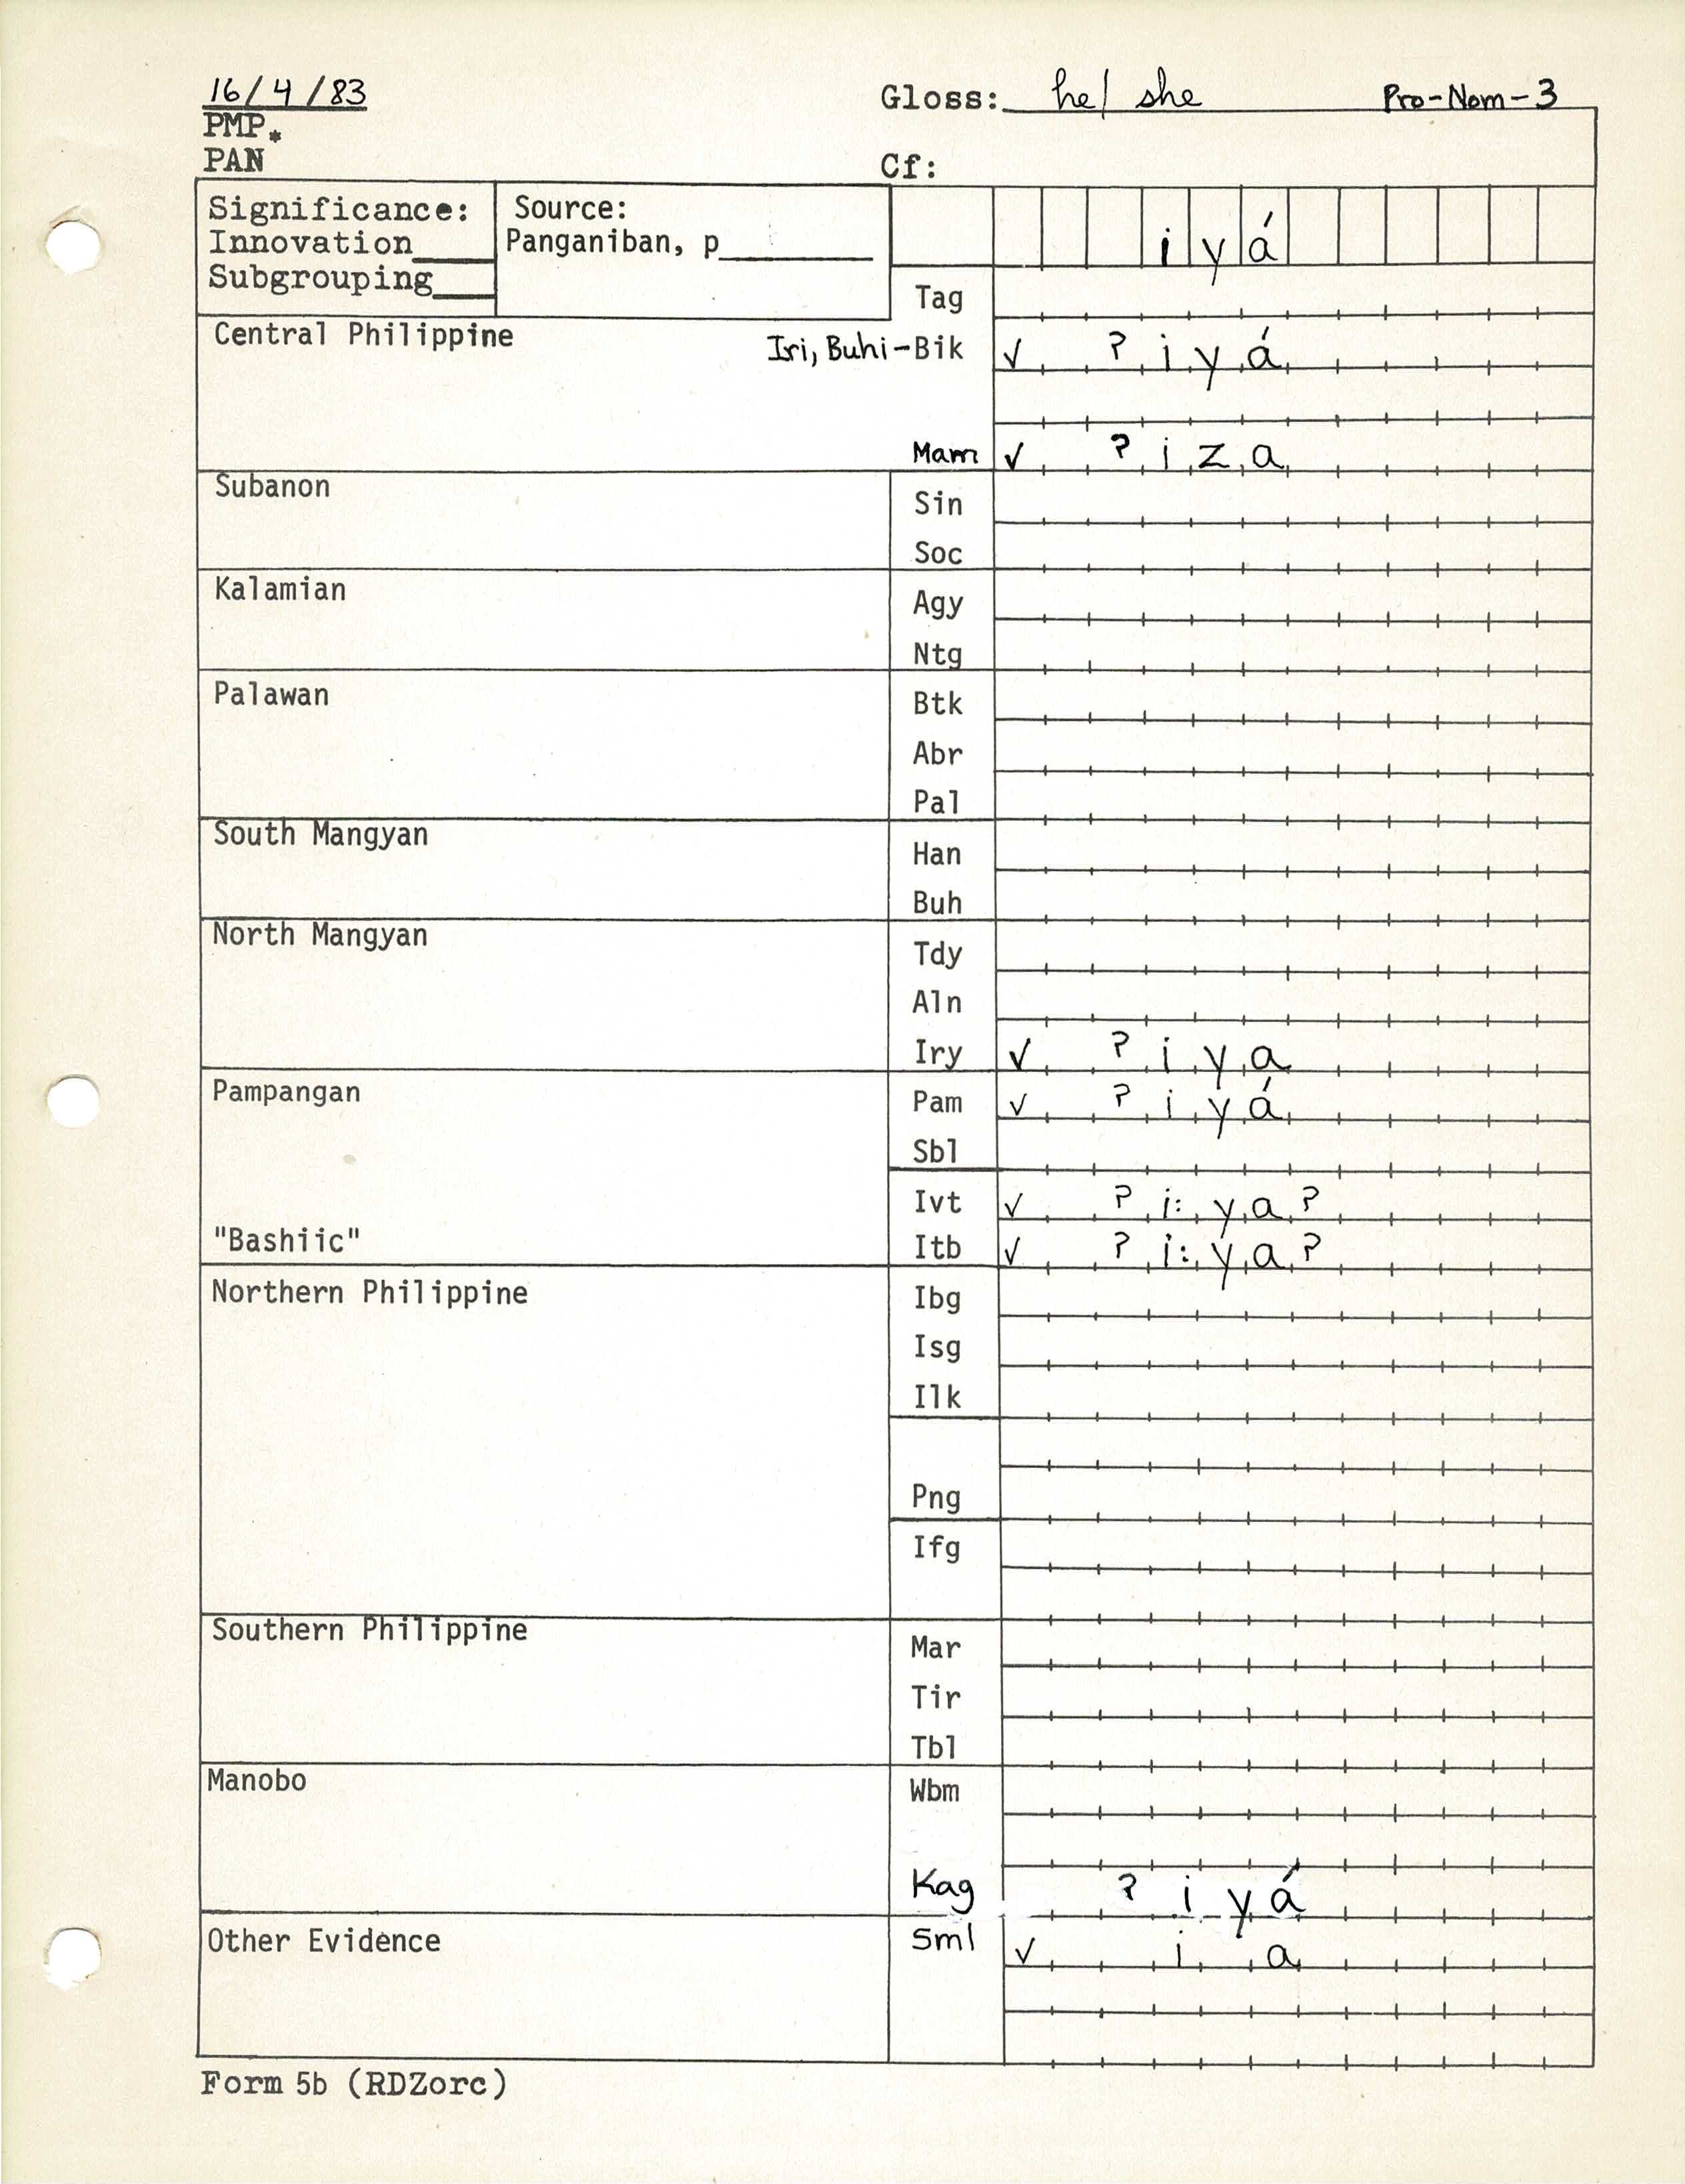 16/4/83 Gloss: he/she Pro-Nom-3
PMP*
PAN Cf:
Significance: Source:
Innovation____ Panganiban, p________ i y á
Subgrouping___
Tag
Central Philippine Iri, Buhi-Bik ✓ ʔ i y á
Mam ✓ ʔ i z a
Subanon
Sin
Soc
Kalamian
Agy
Ntg
Palawan
Btk
Abr
Pal
South Mangyan
Han
Buh
North Mangyan
Tdy
Aln
Iry ✓ ʔ i y a
Pampangan Pam ✓ ʔ i y á
Sbl
Ivt ✓ ʔ i: y a ʔ
"Bashiic" Itb ✓ ʔ i: y a ʔ
Northern Philippine Ibg
Isg
Ilk
Png
Ifg
Southern Philippine
Mar
Tir
Tbl
Manobo Wbm
Kag ʔ i y á
Other Evidence Sml ✓ i a
Form 5b (RDZorc)